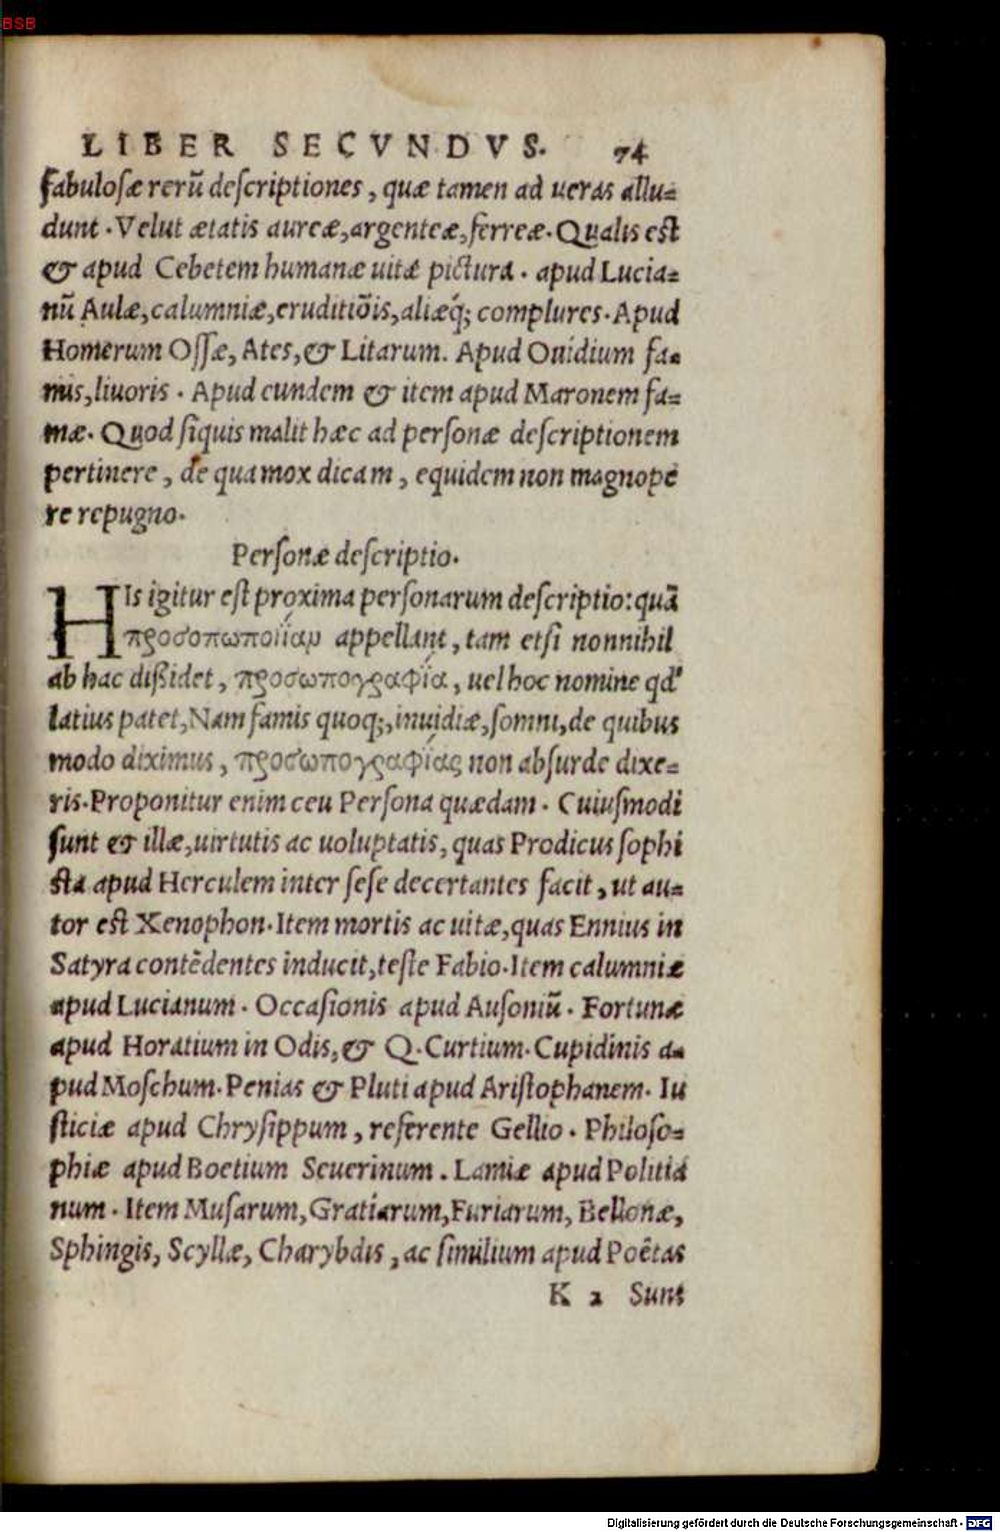 BSB
LIBER SECVNDVS. 74
fabulosæ rerũ descriptiones, quæ tamen ad ueras allu=
dunt. Velut ætatis aureæ, argenteæ, ferreæ. Qualis est
& apud Cebetem humanæ uitæ pictura. apud Lucia=
nũ Aulæ, calumniæ, eruditiõis, aliæq́; complures. Apud
Homerum Ossæ, Ates, & Litarum. Apud Ouidium fa=
mis, liuoris. Apud eundem & item apud Maronem fa=
mæ. Quod siquis malit hæc ad personæ descriptionem
pertinere, de qua mox dicam, equidem non magnope
re repugno.
Personæ descriptio.
HIs igitur est proxima personarum descriptio: quã
προσοπωποιΐαμ appellant, tam etsi nonnihil
ab hac dißidet, προσωπογραφΐα, uel hoc nomine qd'
latius patet, Nam famis quoq;, inuidiæ, somni, de quibus
modo diximus, προσωπογραφΐας non absurde dixe=
ris. Proponitur enim ceu Persona quædam. Cuiusmodi
sunt & illæ, uirtutis ac uoluptatis, quas Prodicus sophi
sta apud Herculem inter sese decertantes facit, ut au=
tor est Xenophon. Item mortis ac uitæ, quas Ennius in
Satyra contẽdentes inducit, teste Fabio. Item calumniæ
apud Lucianum. Occasionis apud Ausoniũ. Fortunæ
apud Horatium in Odis, & Q. Curtium. Cupidinis a=
pud Moschum. Penias & Pluti apud Aristophanem. Iu
sticiæ apud Chrysippum, referente Gellio. Philoso=
phiæ apud Boetium Seuerinum. Lamiæ apud Politia
num. Item Musarum, Gratiarum, Furiarum, Bellonæ,
Sphingis, Scyllæ, Charybdis, ac similium apud Poëtas
K 2 Sunt
Digitalisierung gefördert durch die Deutsche Forschungsgemeinschaft - DFG